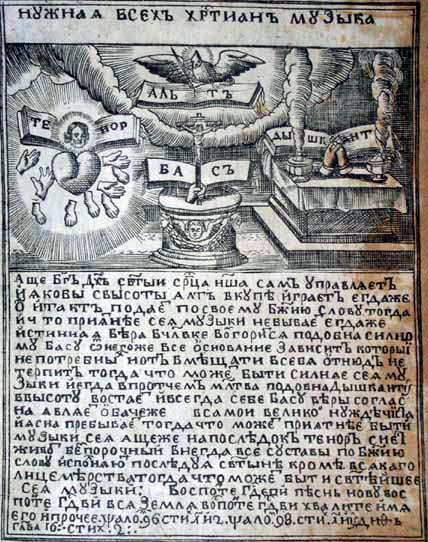 НУЖНАЯ ВСЕХЪ ХРТИАНЪ МУЗЫКА
АЛЬТЪ
ТЕНОР
ДЫШКАНТ
БАСЪ
Аще Бгъ Дхъ свтыи срца нша самъ управляетъ
И яковы свысоты Алтъ вкупѣ играетъ егдаже
О и тактъ подае посвоему бжию слову тогда
ничто приянѣе сея музыки небывае егдаже
истинная вѣра вчлавке вогорися подобна силно
му басу ѿнегоже все основание зависитъ которыи
непотребныя нотъ вмѣщати всебя отнюдь не
терпитъ тогда что може быти силнае сея му
зыки иегда впротчемъ млтва подобна дышканту
ввысоту востае ивсегда себе басу вѣры соглас
на являе обачеже всамои велико нужде чиста
иасна пребывае тогда что може приатнѣе быти
музыки сея ащеже напослѣдокъ теноръ сиеи
живо беспорочный внегда все суставы по Бжию
слову исполняю послѣдуя свтыне кромѣ всякаго
лицемѣрства тогда что може быти свтѣише
Сея музыки: Воспоите Гдеви пѣснь нову вос
поите Гдви вся земля вопоте Гдви хвалите имя
его ипрочее ѱало: 96 сти: ѱало: 98. сти:
глва 10: стих: 2: